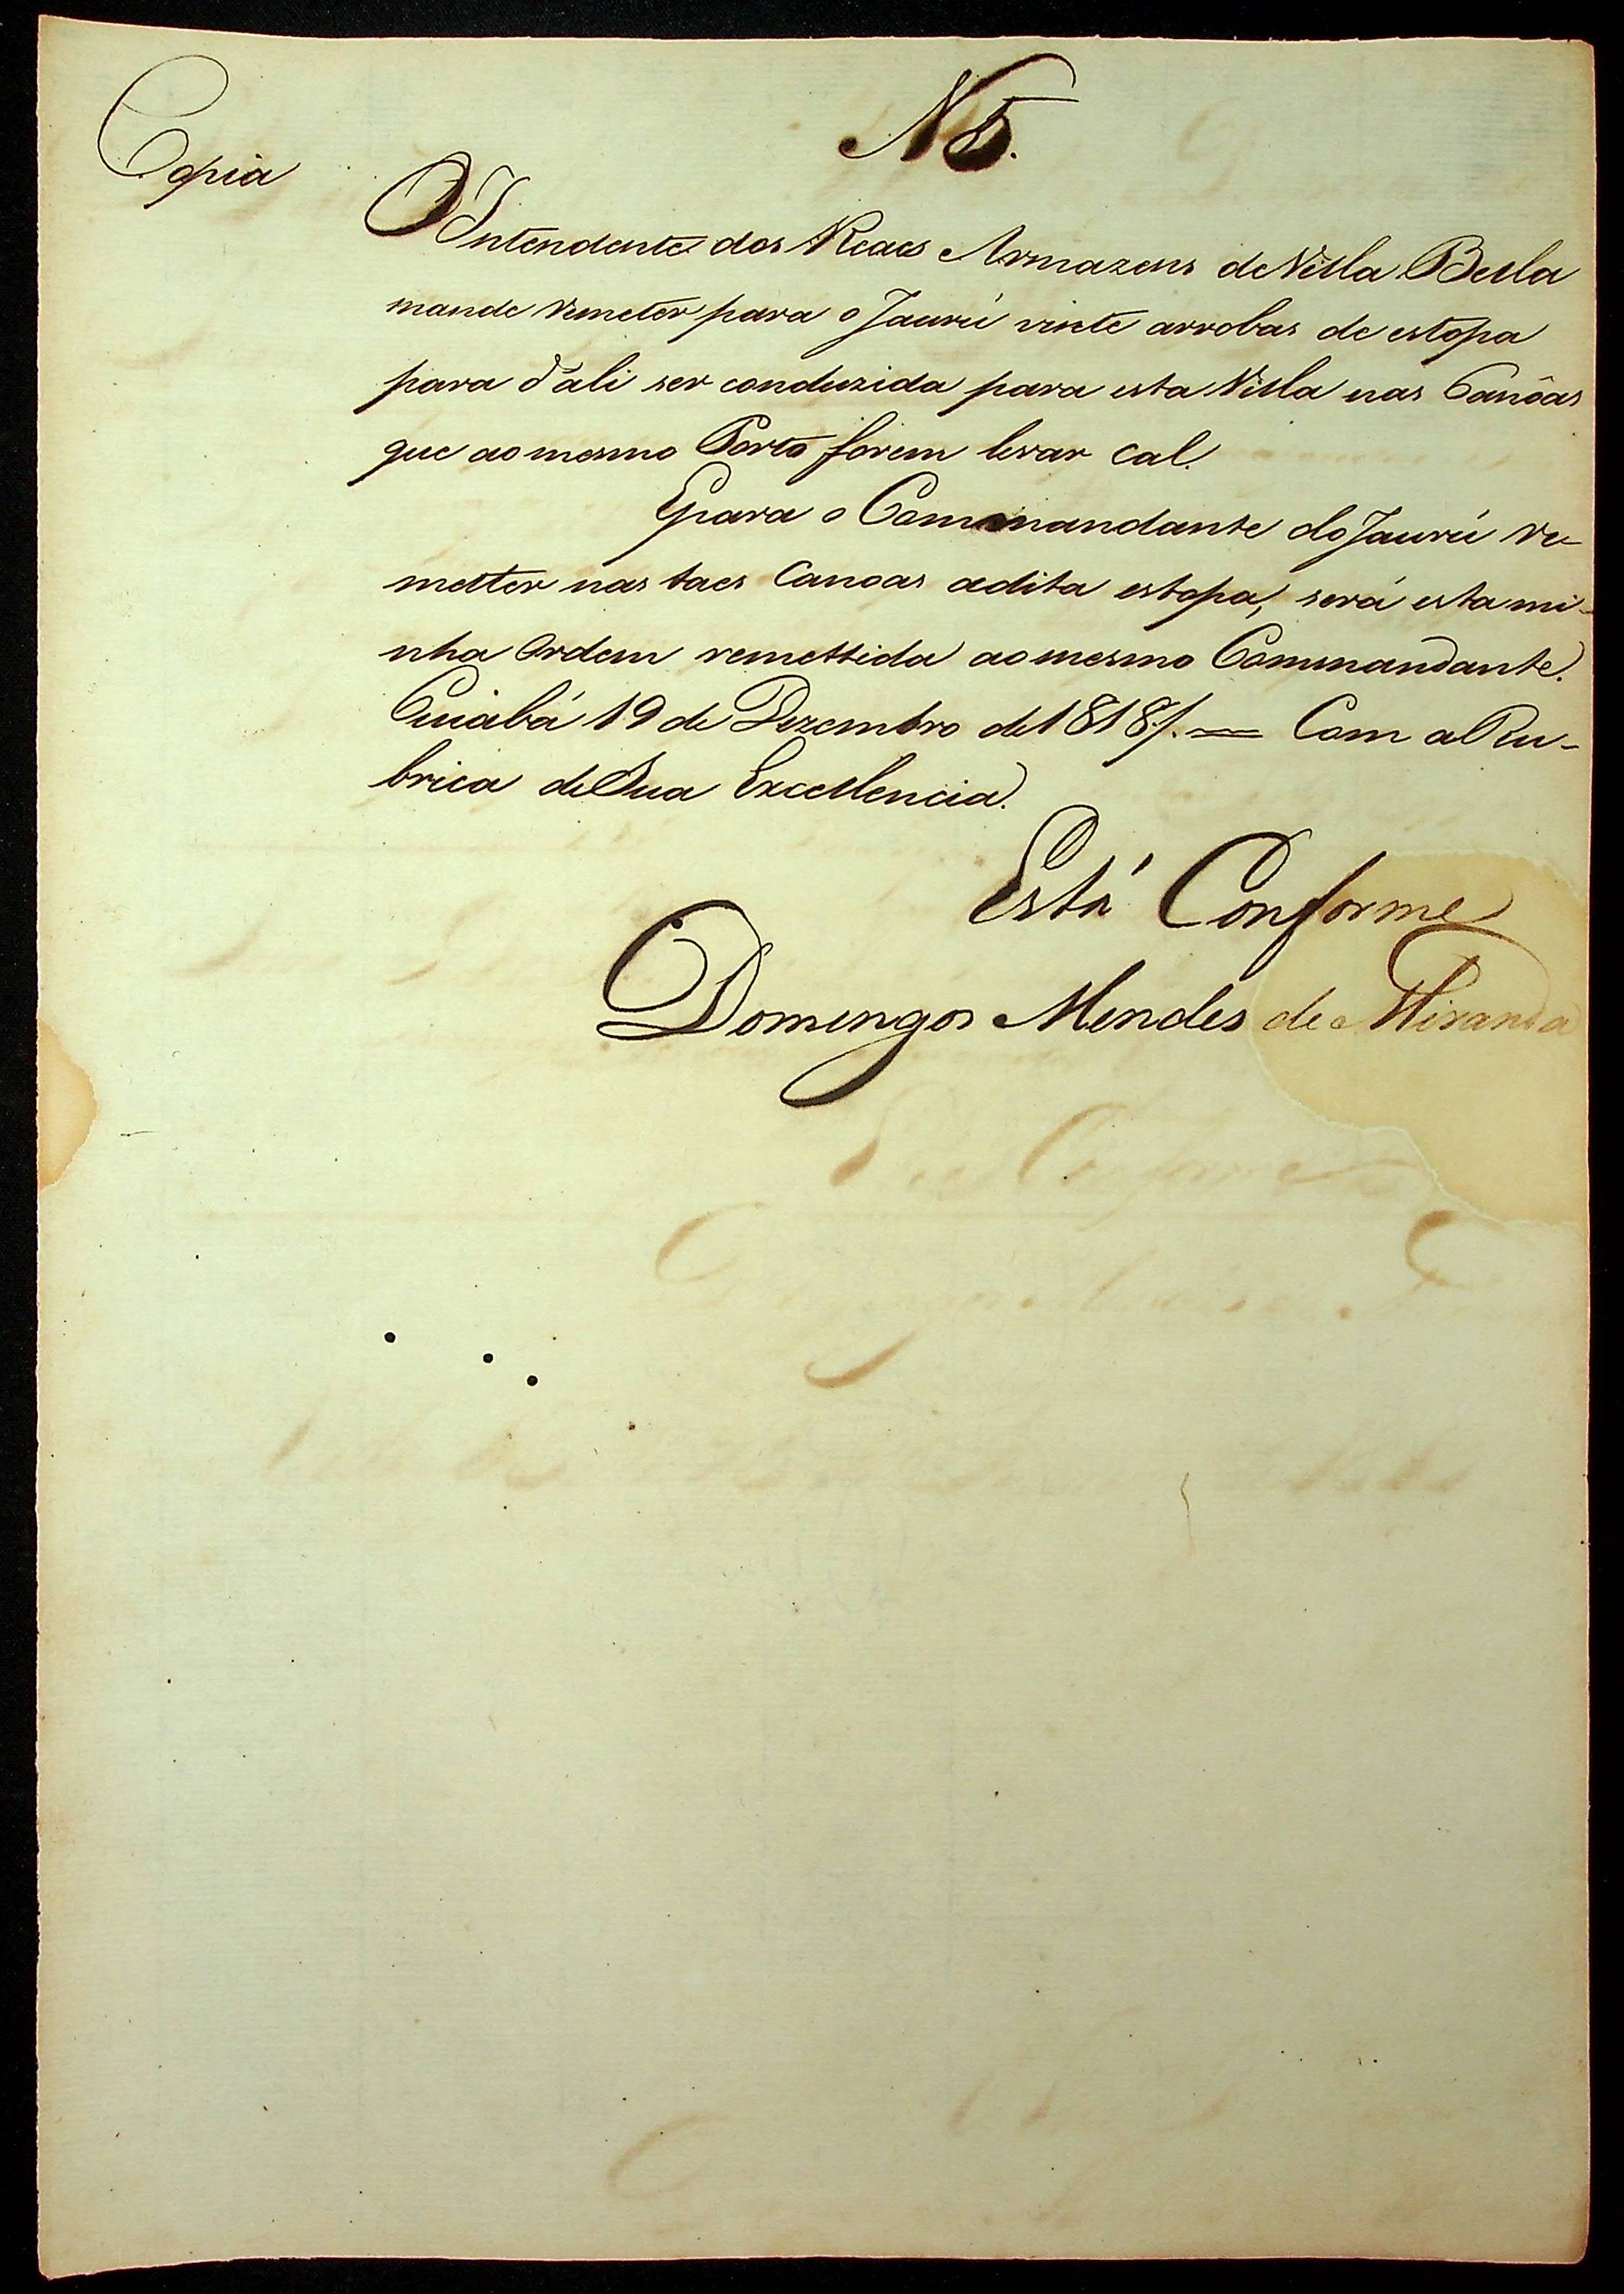 N 5.
Copia
O Intendente dos Reaes Armazens de Villa Bella
mande remeter para o Jaurú vinte arrobas de estopa
para d'ali ser conduzida para esta Villa nas Canôas
que ao mesmo Porto forem levar cal.
E para o Commandante do Jaurú re-
metter nas taes Canoas adita estopa, será esta mi-
nha Ordem remettida ao mesmo Commandante.
Cuiabá 19 de Dezembro de 1818/. = Com a Ru-
brica de Sua Excellencia.
Está Conforme
Domingos Mendes de Miranda